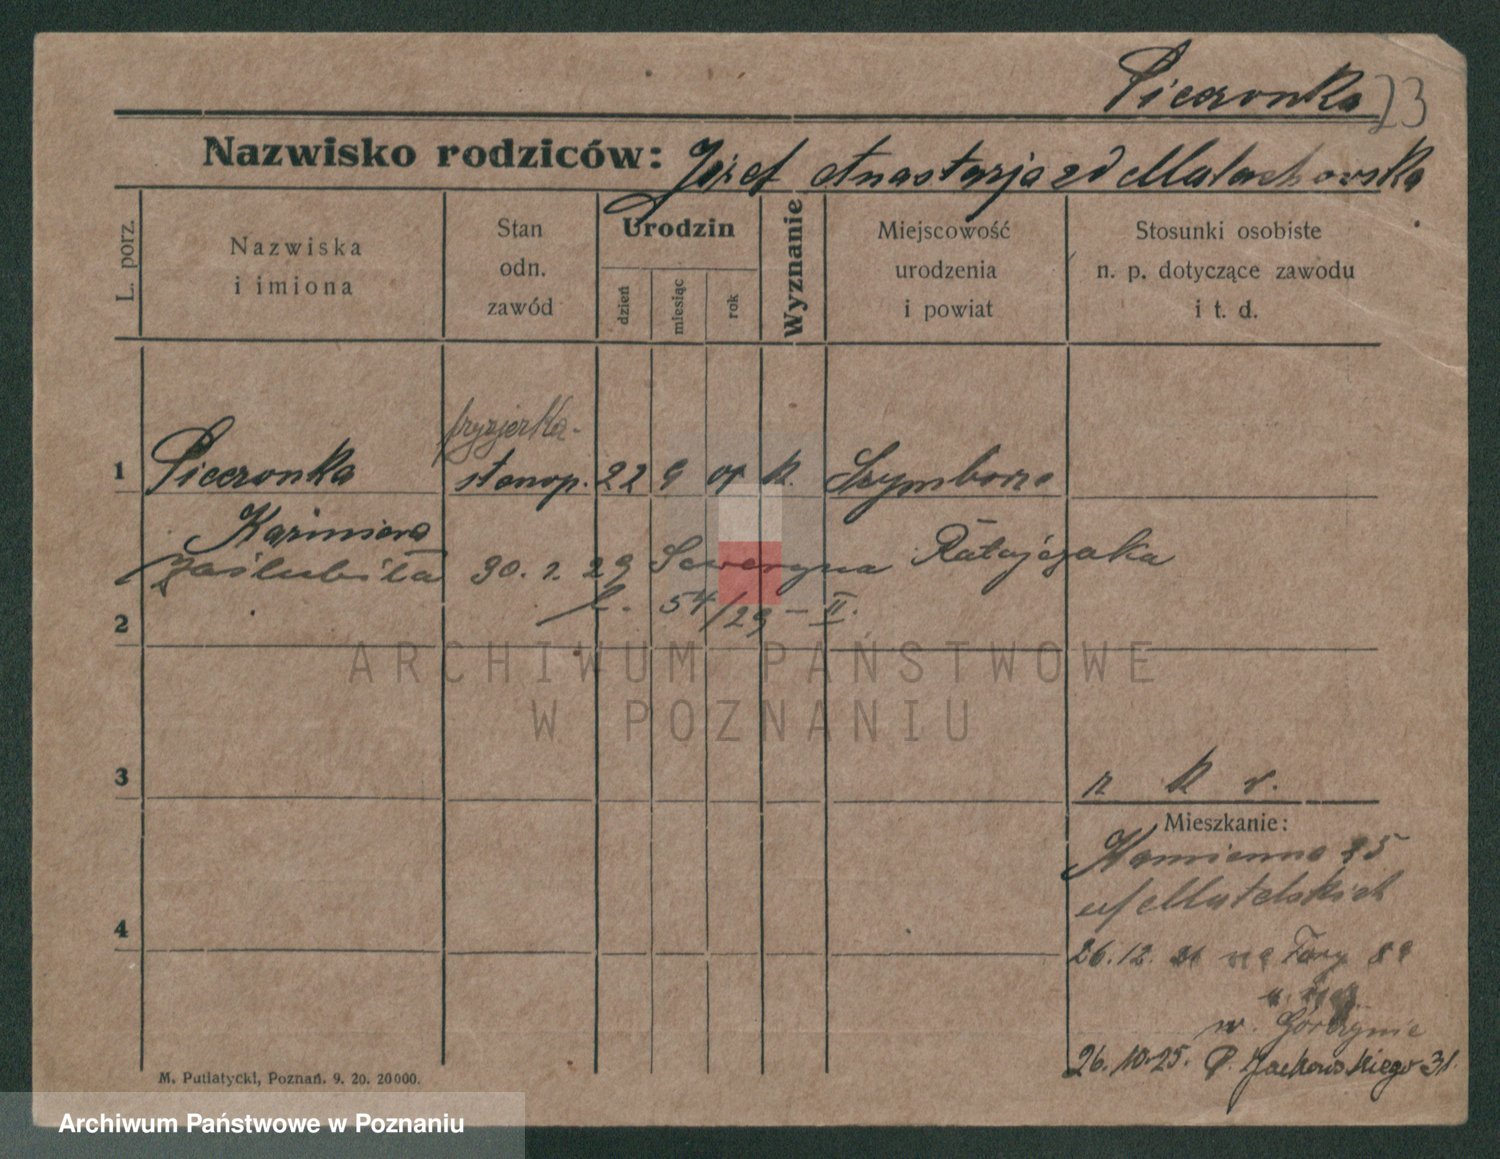 Pieczonka 23
Nazwisko rodziców: Józef Anastazja zd Małachowska
L. porz.
Nazwiska
i imiona
Stan
odn.
zawód
Urodzin
dzień
miesiąc
rok
Wyznanie
Miejscowość
urodzenia
i powiat
Stosunki osobiste
n. p. dotyczące zawodu
i t. d.
fryzjerka-
1 Pieczonka stanop. 22 9 07 k. Szymborze
Kazimiera
zaślubiła 30. 1. 29 Seweryna Ratajczaka
2 L. 54/29 - II.
ARCHIWUM PAŃSTWOWE
W POZNANIU
3 r k r.
Mieszkanie:
Kamienna 25
u/ Matelskich
4
26.12. na Tamy 8
w. Gorzynie
26.10.25. P. Jackowskiego 31.
M. Putiatycki, Poznań. 9. 20. 20000.
Archiwum Państwowe w Poznaniu